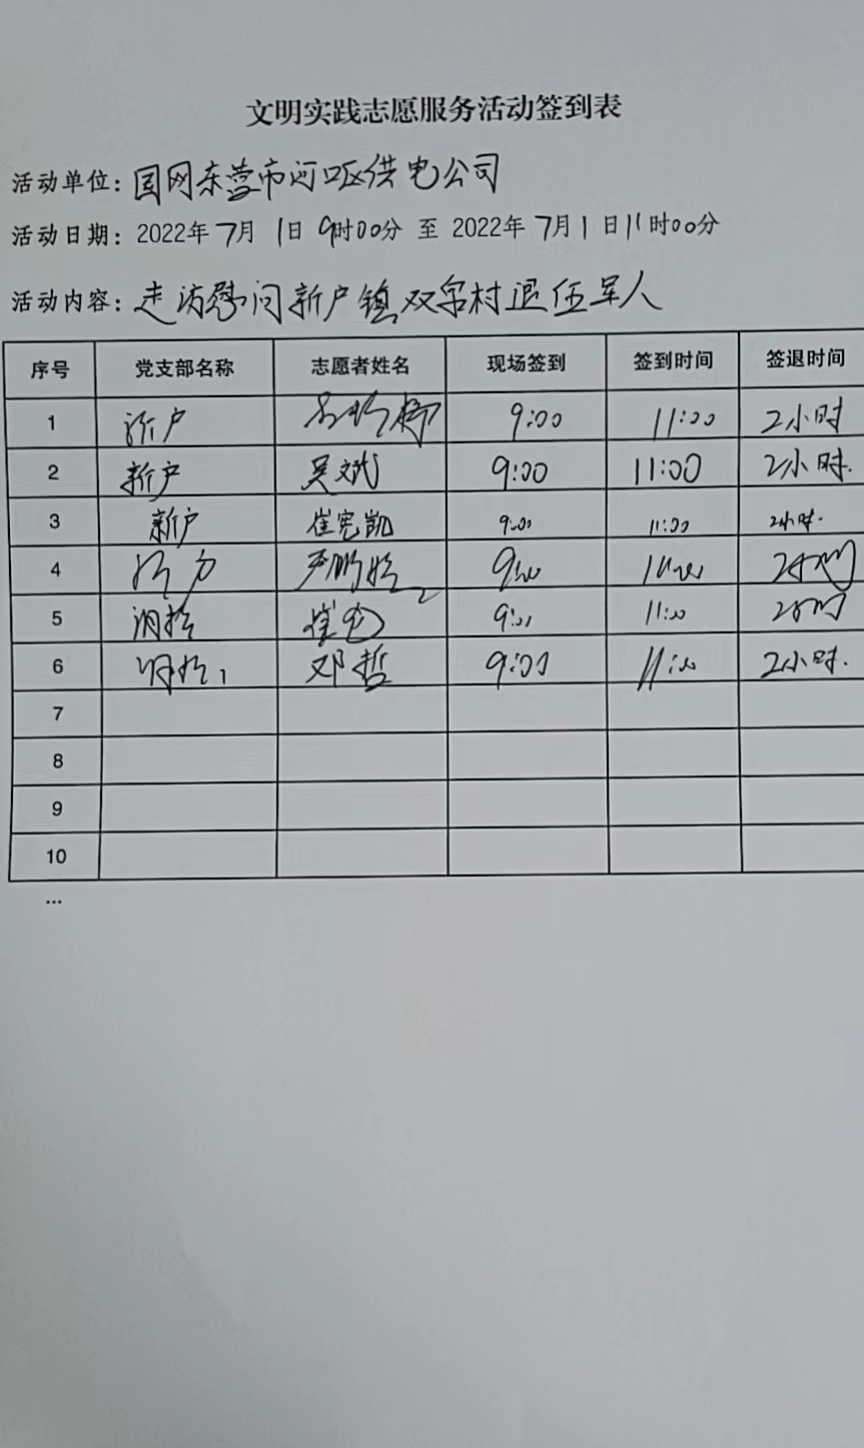 文明实践志愿服务活动签到表
活动单位: 国网东营市河口区供电公司
活动日期: 2022年7月1日9时00分 至 2022年7月1日11时00分
活动内容: 走访慰问新户镇双窑村退伍军人
序号 党支部名称 志愿者姓名 现场签到 签到时间 签退时间
1 新户 9:00 11:00 2小时
2 新户 吴斌 9:00 11:00 2小时.
3 新户 崔宪凯 9:00 11:00 2小时.
4 9:00 11:00 2小时
5 9:00 11:00 2小时
6 邓哲 9:00 11:00 2小时.
7
8
9
10
...